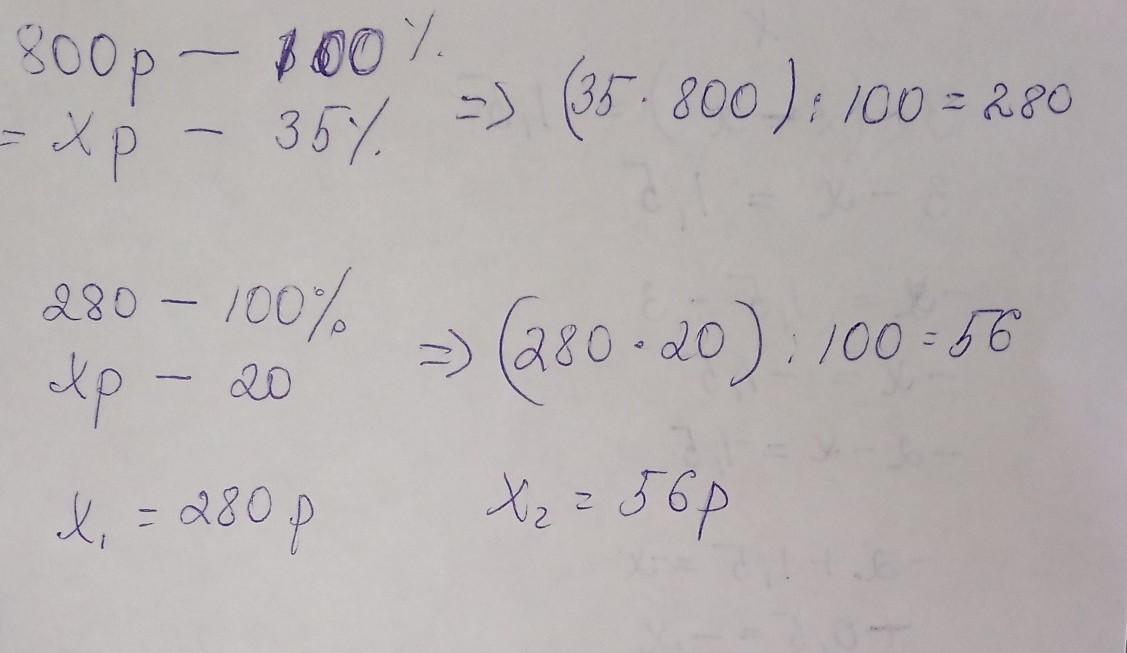 800р — 100%
= xр — 35%. => (35 · 800) : 100 = 280
280 — 100%
xр — 20 => (280 · 20) : 100 = 56
x₁ = 280р x₂ = 56р
3 - x = 1,5